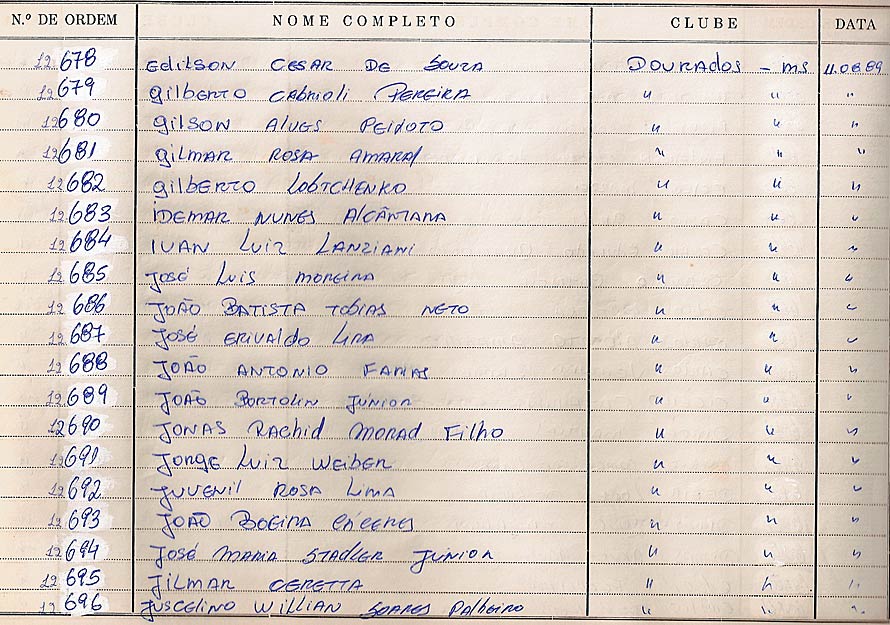 N.º DE ORDEM NOME COMPLETO CLUBE DATA
12678 Edilson Cesar de Souza Dourados - MS 11.08.89
12679 Gilberto Cabrioli Pereira " " "
12680 Gilson Alves Peixoto " " "
12681 Gilmar Rosa Amaral " " "
12682 Gilberto Lobtchenko " " "
12683 Idemar Nunes Alcântara " " "
12684 Ivan Luiz Lanziani " " "
12685 José Luis Moreira " " "
12686 João Batista Tobias Neto " " "
12687 José Erivaldo Lira " " "
12688 João Antonio Farias " " "
12689 João Bortolin Junior " " "
12690 Jonas Rachid Morad Filho " " "
12691 Jorge Luiz Weiber " " "
12692 Juvenil Rosa Lima " " "
12693 João Cáceres " " "
12694 José Maria Stadler Junior " " "
12695 Jilmar Ceretta " " "
12696 Juscelino Willian Soares Palheiro " " "